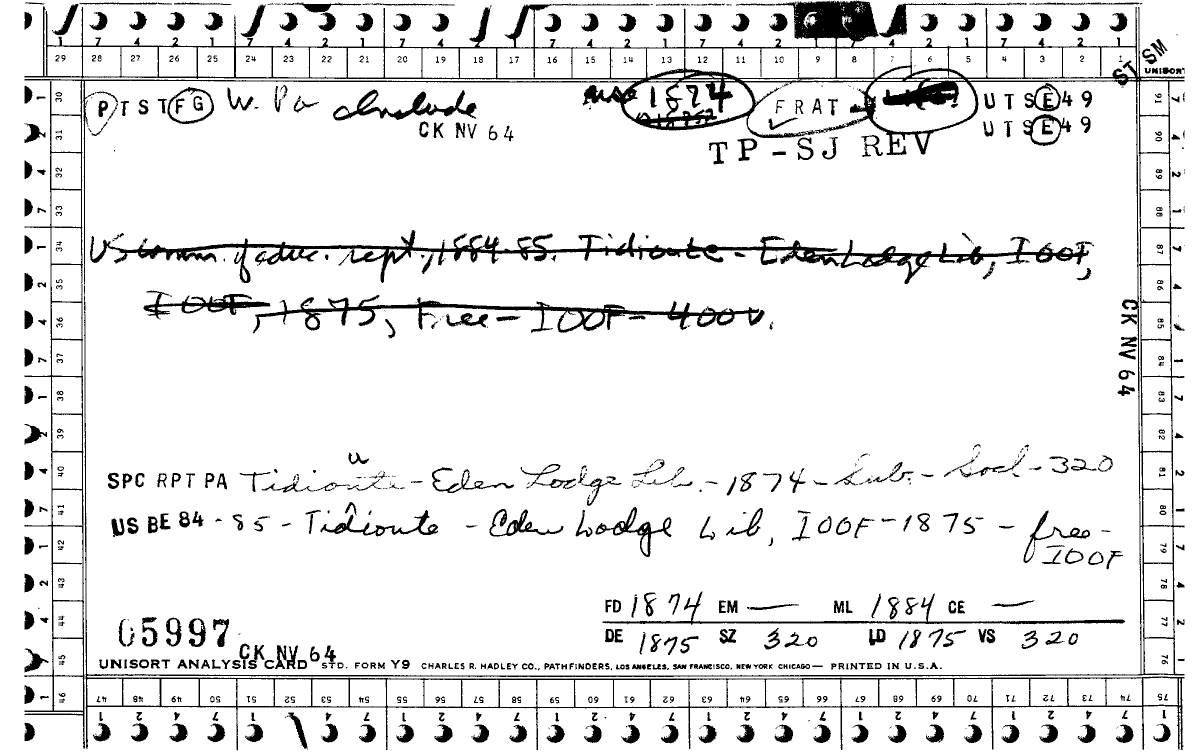 7 4 2 1 7 4 2 1 7 4 2 1 7 4 2 1 7 4 2 1 7 4 2 1 7 4 2 1
29 28 27 26 25 24 23 22 21 20 19 18 17 16 15 14 13 12 11 10 9 8 7 6 5 4 3 2 1
ST SM
UNISORT
P T S T F G W. Pa Include
1874
FRAT
U T S E 4 9
CK NV 64
U T S E 4 9
TP-SJ REV
US comm. of educ. rept., 1884-85. Tidioute - Eden Lodge Lib, IOOF,
IOOF, 1875, Free - IOOF - 400 v.
CK NV 64
u
SPC RPT PA Tidionte - Eden Lodge Lib. - 1874 - Sub. - Socl - 320
US BE 84 - 85 - Tidioute - Eden Lodge Lib, IOOF - 1875 - free -
IOOF
FD 1874 EM — ML 1884 CE —
DE 1875 SZ 320 LD 1875 VS 320
05997
CK NV 64
UNISORT ANALYSIS CARD STD. FORM Y9 CHARLES R. HADLEY CO., PATHFINDERS, LOS ANGELES, SAN FRANCISCO, NEW YORK CHICAGO — PRINTED IN U.S.A.
47 48 49 50 51 52 53 54 55 56 57 58 59 60 61 62 63 64 65 66 67 68 69 70 71 72 73 74 75